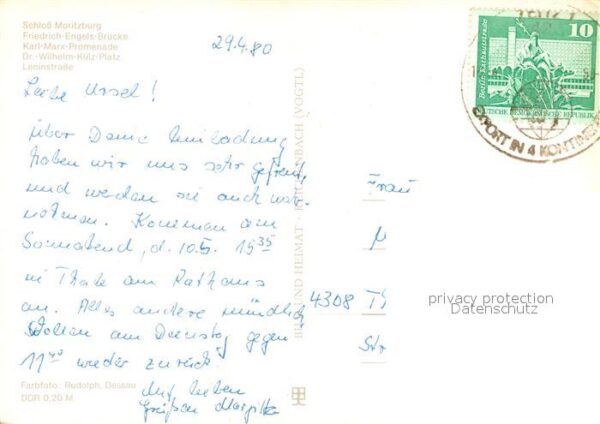 Schloß Moritzburg
Friedrich-Engels-Brücke
Karl-Marx-Promenade
Dr.-Wilhelm-Külz-Platz
Leninstraße
29.4.80
Liebe Ursel!
über Deine Einladung
haben wir uns sehr gefreut
und werden sie auch wahr-
nehmen. Kommen am
Sonnabend, d. 10.5. 15³⁵
in Thale am Rathaus
an. Alles andere mündlich
Wollen am Dienstag gegen
11⁴⁰ wieder zurück.
Mit lieben
Grüßen
Farbfoto: Rudolph, Dessau
DDR 0,20 M
BILD UND HEIMAT REICHENBACH (VOGTL)
10
Berlin, Rathausstraße
DEUTSCHE DEMOKRATISCHE REPUBLIK
EXPORT IN 4 KONTINE
Frau
M
4308 Th
Str
privacy protection
Datenschutz